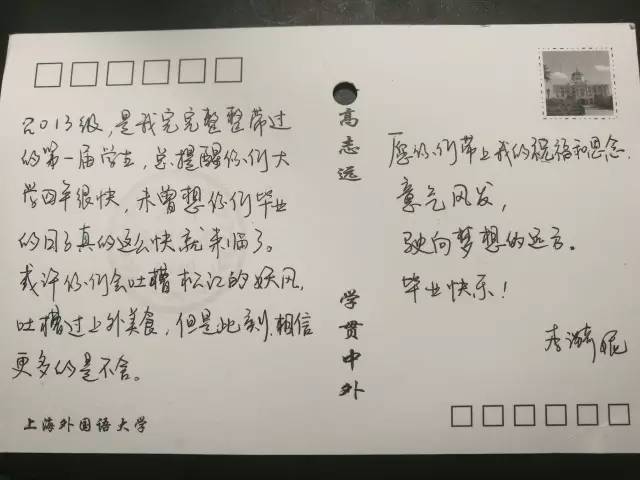 2013级，是我完完整整带过
的第一届学生，总提醒你们大
学四年很快，未曾想你们毕业
的日子真的这么快就来临了。
或许你们会吐槽松江的妖风，
吐槽过上外美食，但是此刻，相信
更多的是不舍。
上海外国语大学
高志远
学贯中外
愿你们带上我的祝福和思念，
意气风发，
驶向梦想的远方。
毕业快乐！
李